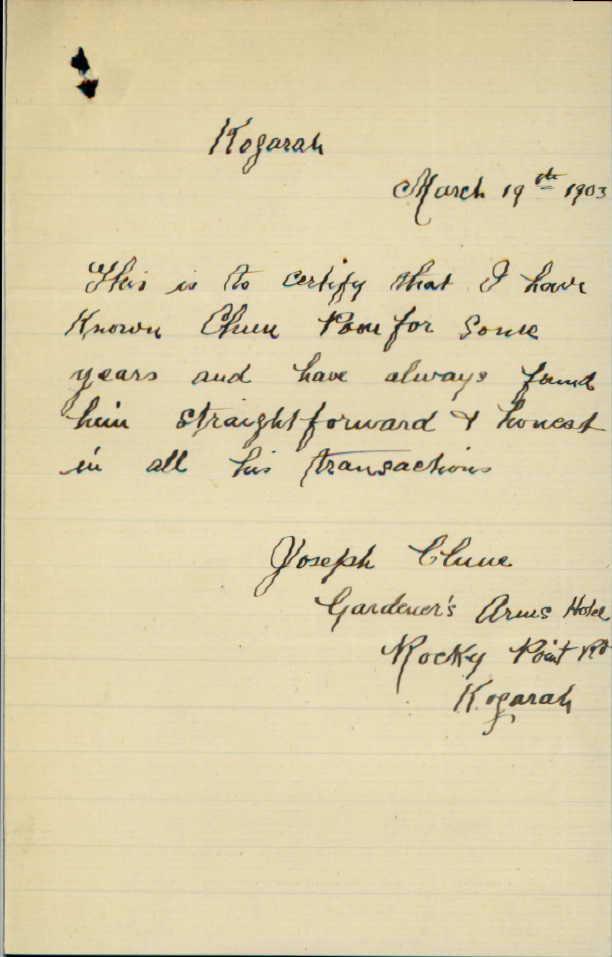 Kogarah
March 19th 1903
This is to certify that I have
Known Chun for some
years and have always found
him straightforward & honest
in all his transactions
Joseph Clune
Gardener's Arms Hotel
Rocky Point Rd
Kogarah